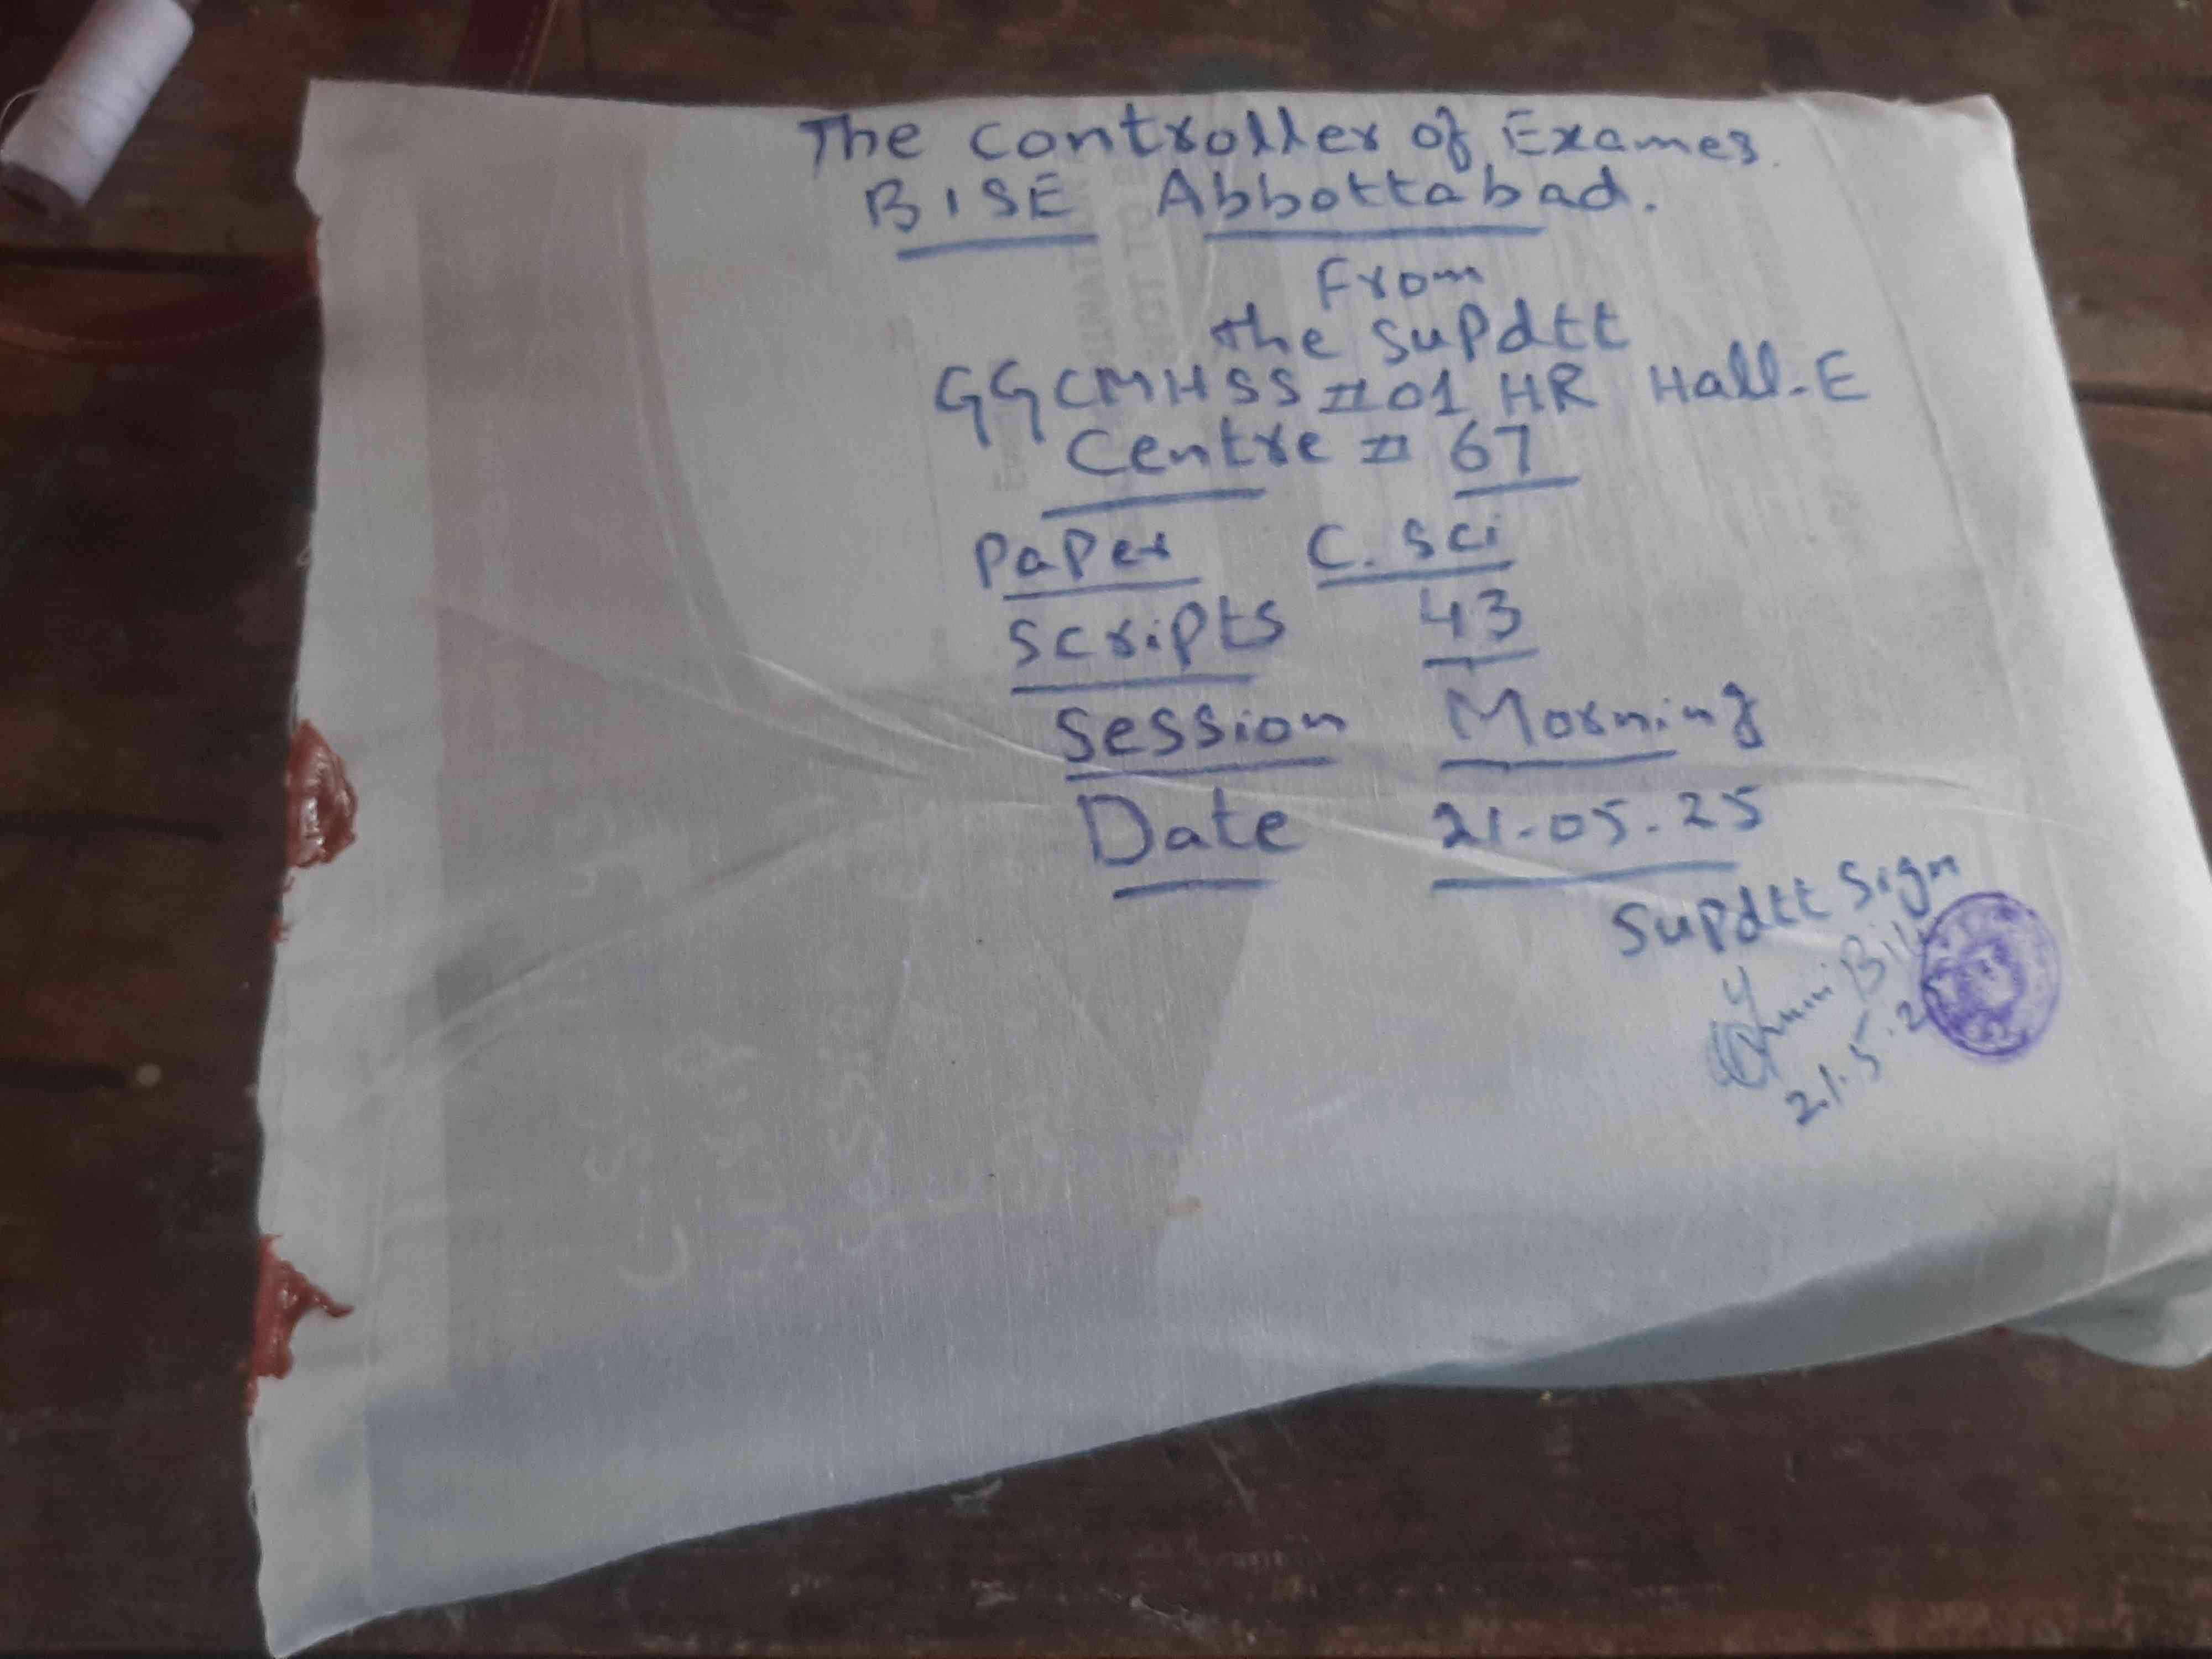 The Controller of Exames.
BISE Abbottabad.
From
the Supdtt
GGCMHSS #01 HR Hall-E
Centre # 67
Paper C. Sci
Scripts 43
Session Morning
Date 21-05-25
Supdtt Sign
21.5.2